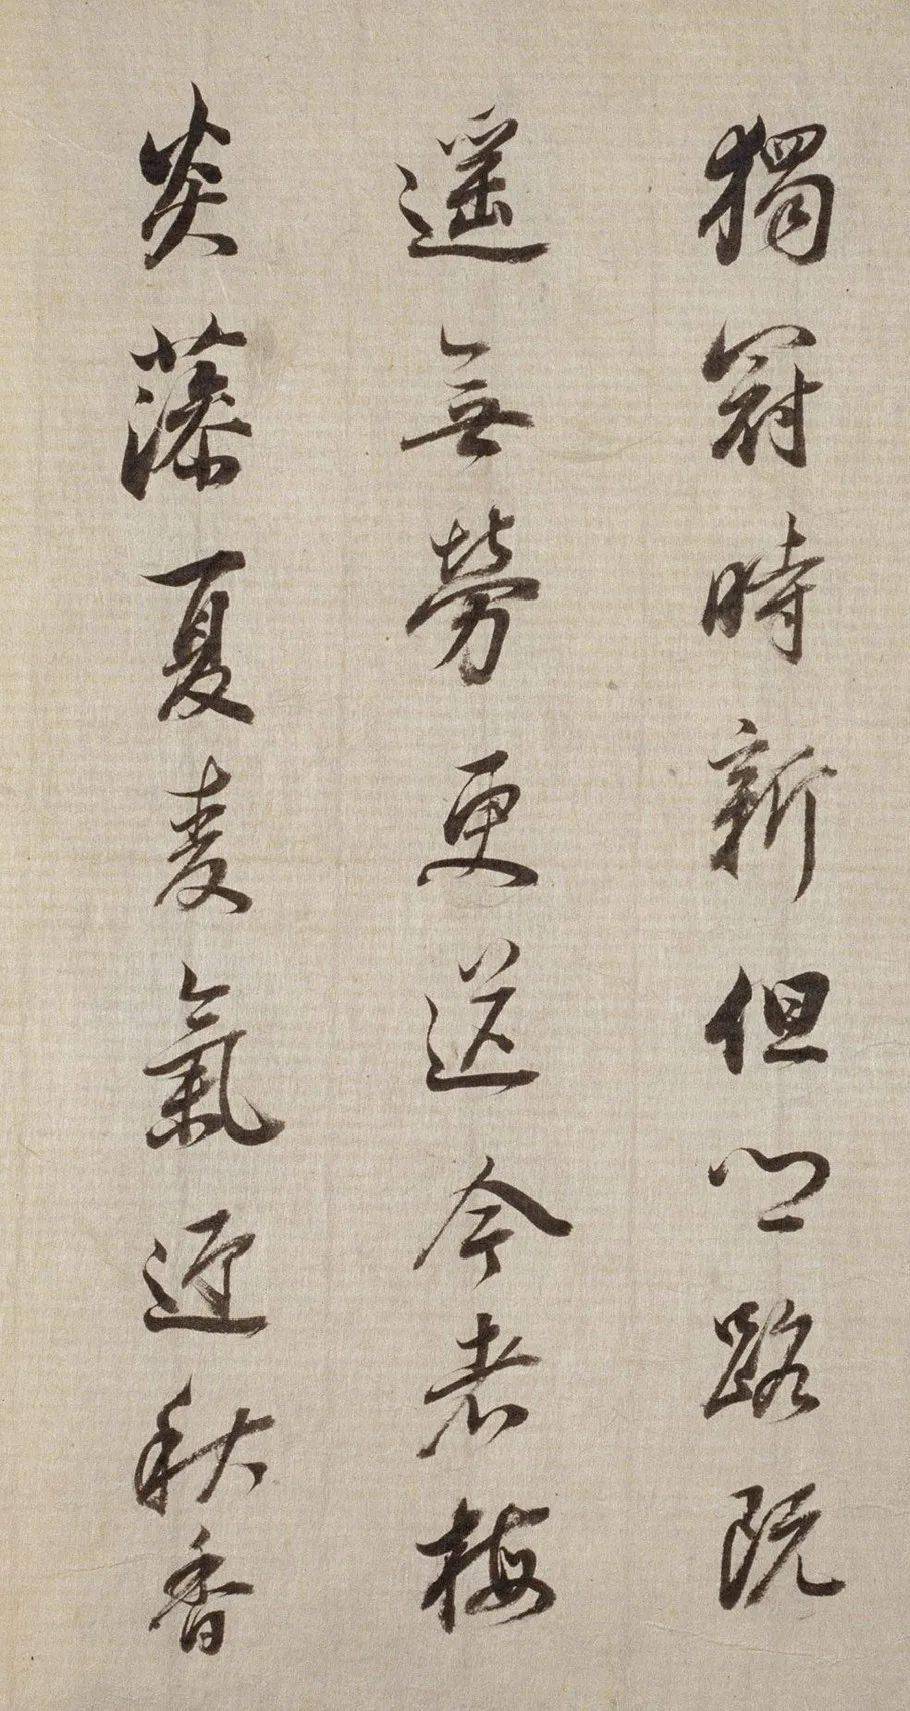 獨冠時新但以路既
遥無勞更送今老梅
炎夏麦氣迎秋香